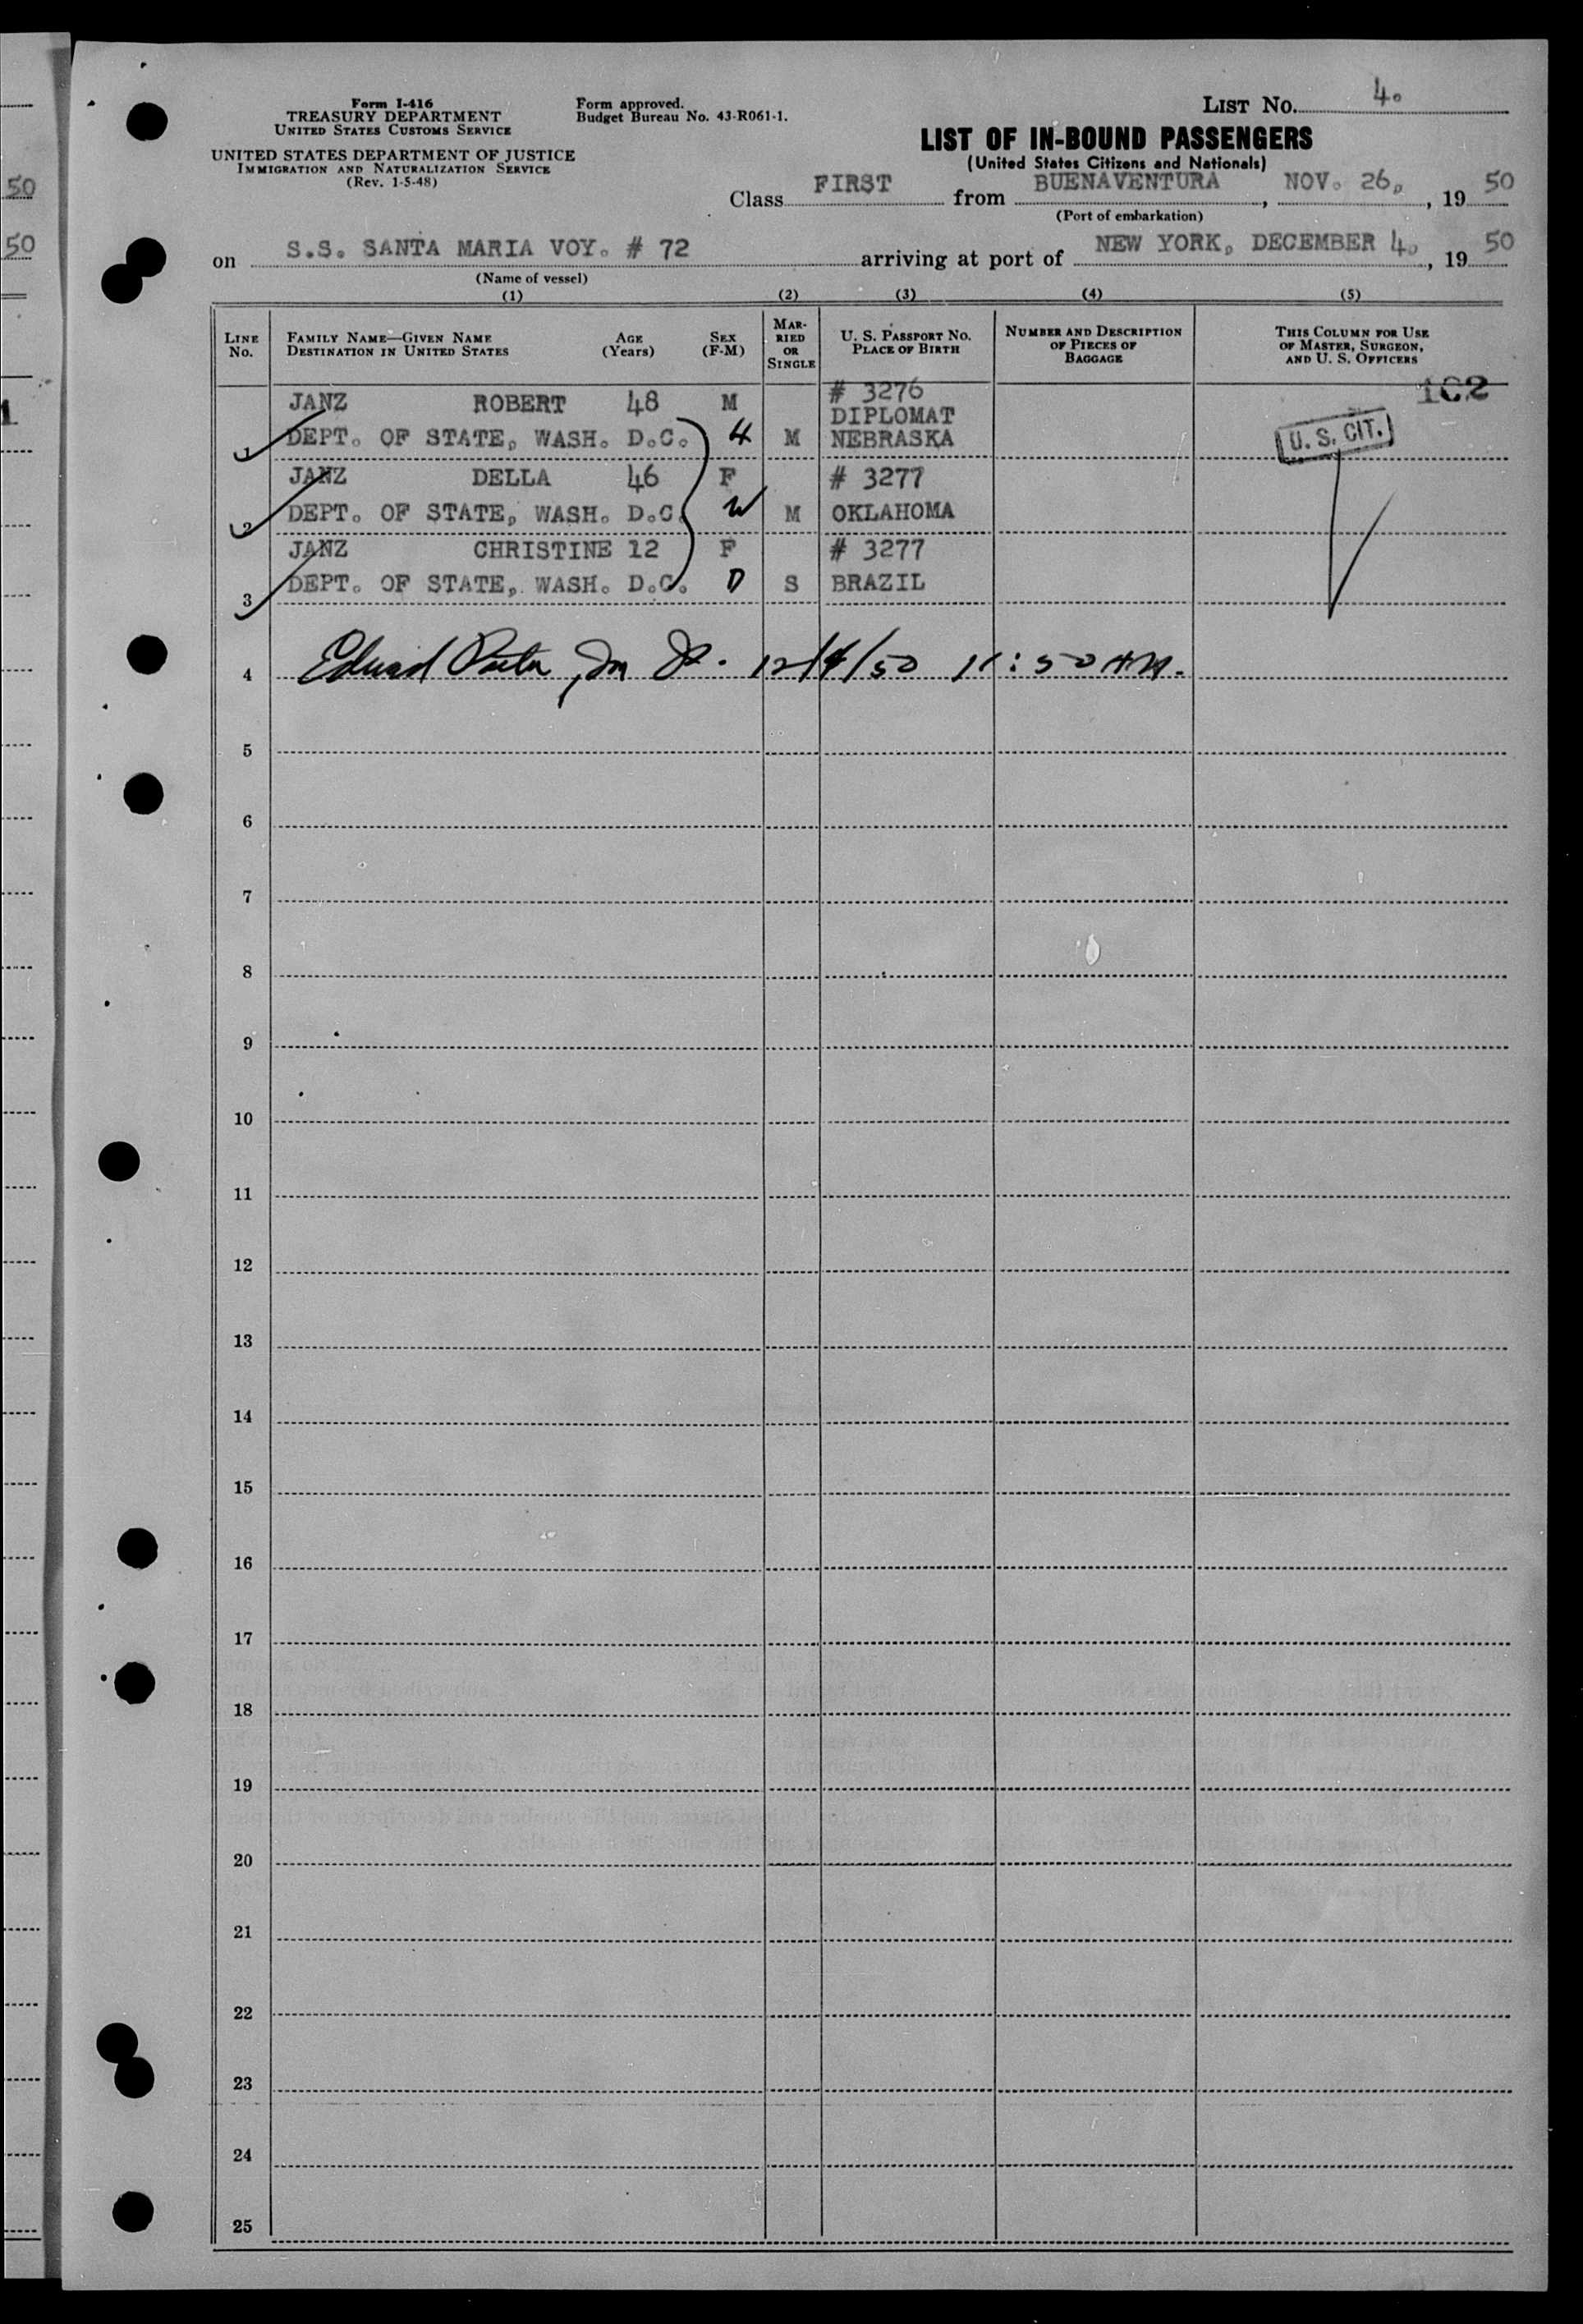 50
50
1
Form I-416
TREASURY DEPARTMENT
UNITED STATES CUSTOMS SERVICE
UNITED STATES DEPARTMENT OF JUSTICE
IMMIGRATION AND NATURALIZATION SERVICE
(Rev. 1-5-48)
Form approved.
Budget Bureau No. 43-R061-1.
LIST NO. 4.
LIST OF IN-BOUND PASSENGERS
(United States Citizens and Nationals)
Class FIRST from BUENAVENTURA, NOV. 26, , 19 50
(Port of embarkation)
on S.S. SANTA MARIA VOY. # 72 arriving at port of NEW YORK, DECEMBER 4. , 19 50
(Name of vessel)
(1) (2) (3) (4) (5)
LINE NO.
FAMILY NAME—GIVEN NAME
DESTINATION IN UNITED STATES
AGE (Years)
SEX (F-M)
MARRIED OR SINGLE
U. S. PASSPORT NO.
PLACE OF BIRTH
NUMBER AND DESCRIPTION OF PIECES OF BAGGAGE
THIS COLUMN FOR USE OF MASTER, SURGEON, AND U. S. OFFICERS
102
JANZ ROBERT 48 M # 3276
DIPLOMAT
1 DEPT. OF STATE, WASH. D.C. H M NEBRASKA U. S. CIT.
JANZ DELLA 46 F # 3277
2 DEPT. OF STATE, WASH. D.C. W M OKLAHOMA
JANZ CHRISTINE 12 F # 3277
3 DEPT. OF STATE, WASH. D.C. D S BRAZIL
4 Edward 12/4/50 11:50 AM.
5
6
7
8
9
10
11
12
13
14
15
16
17
18
19
20
21
22
23
24
25